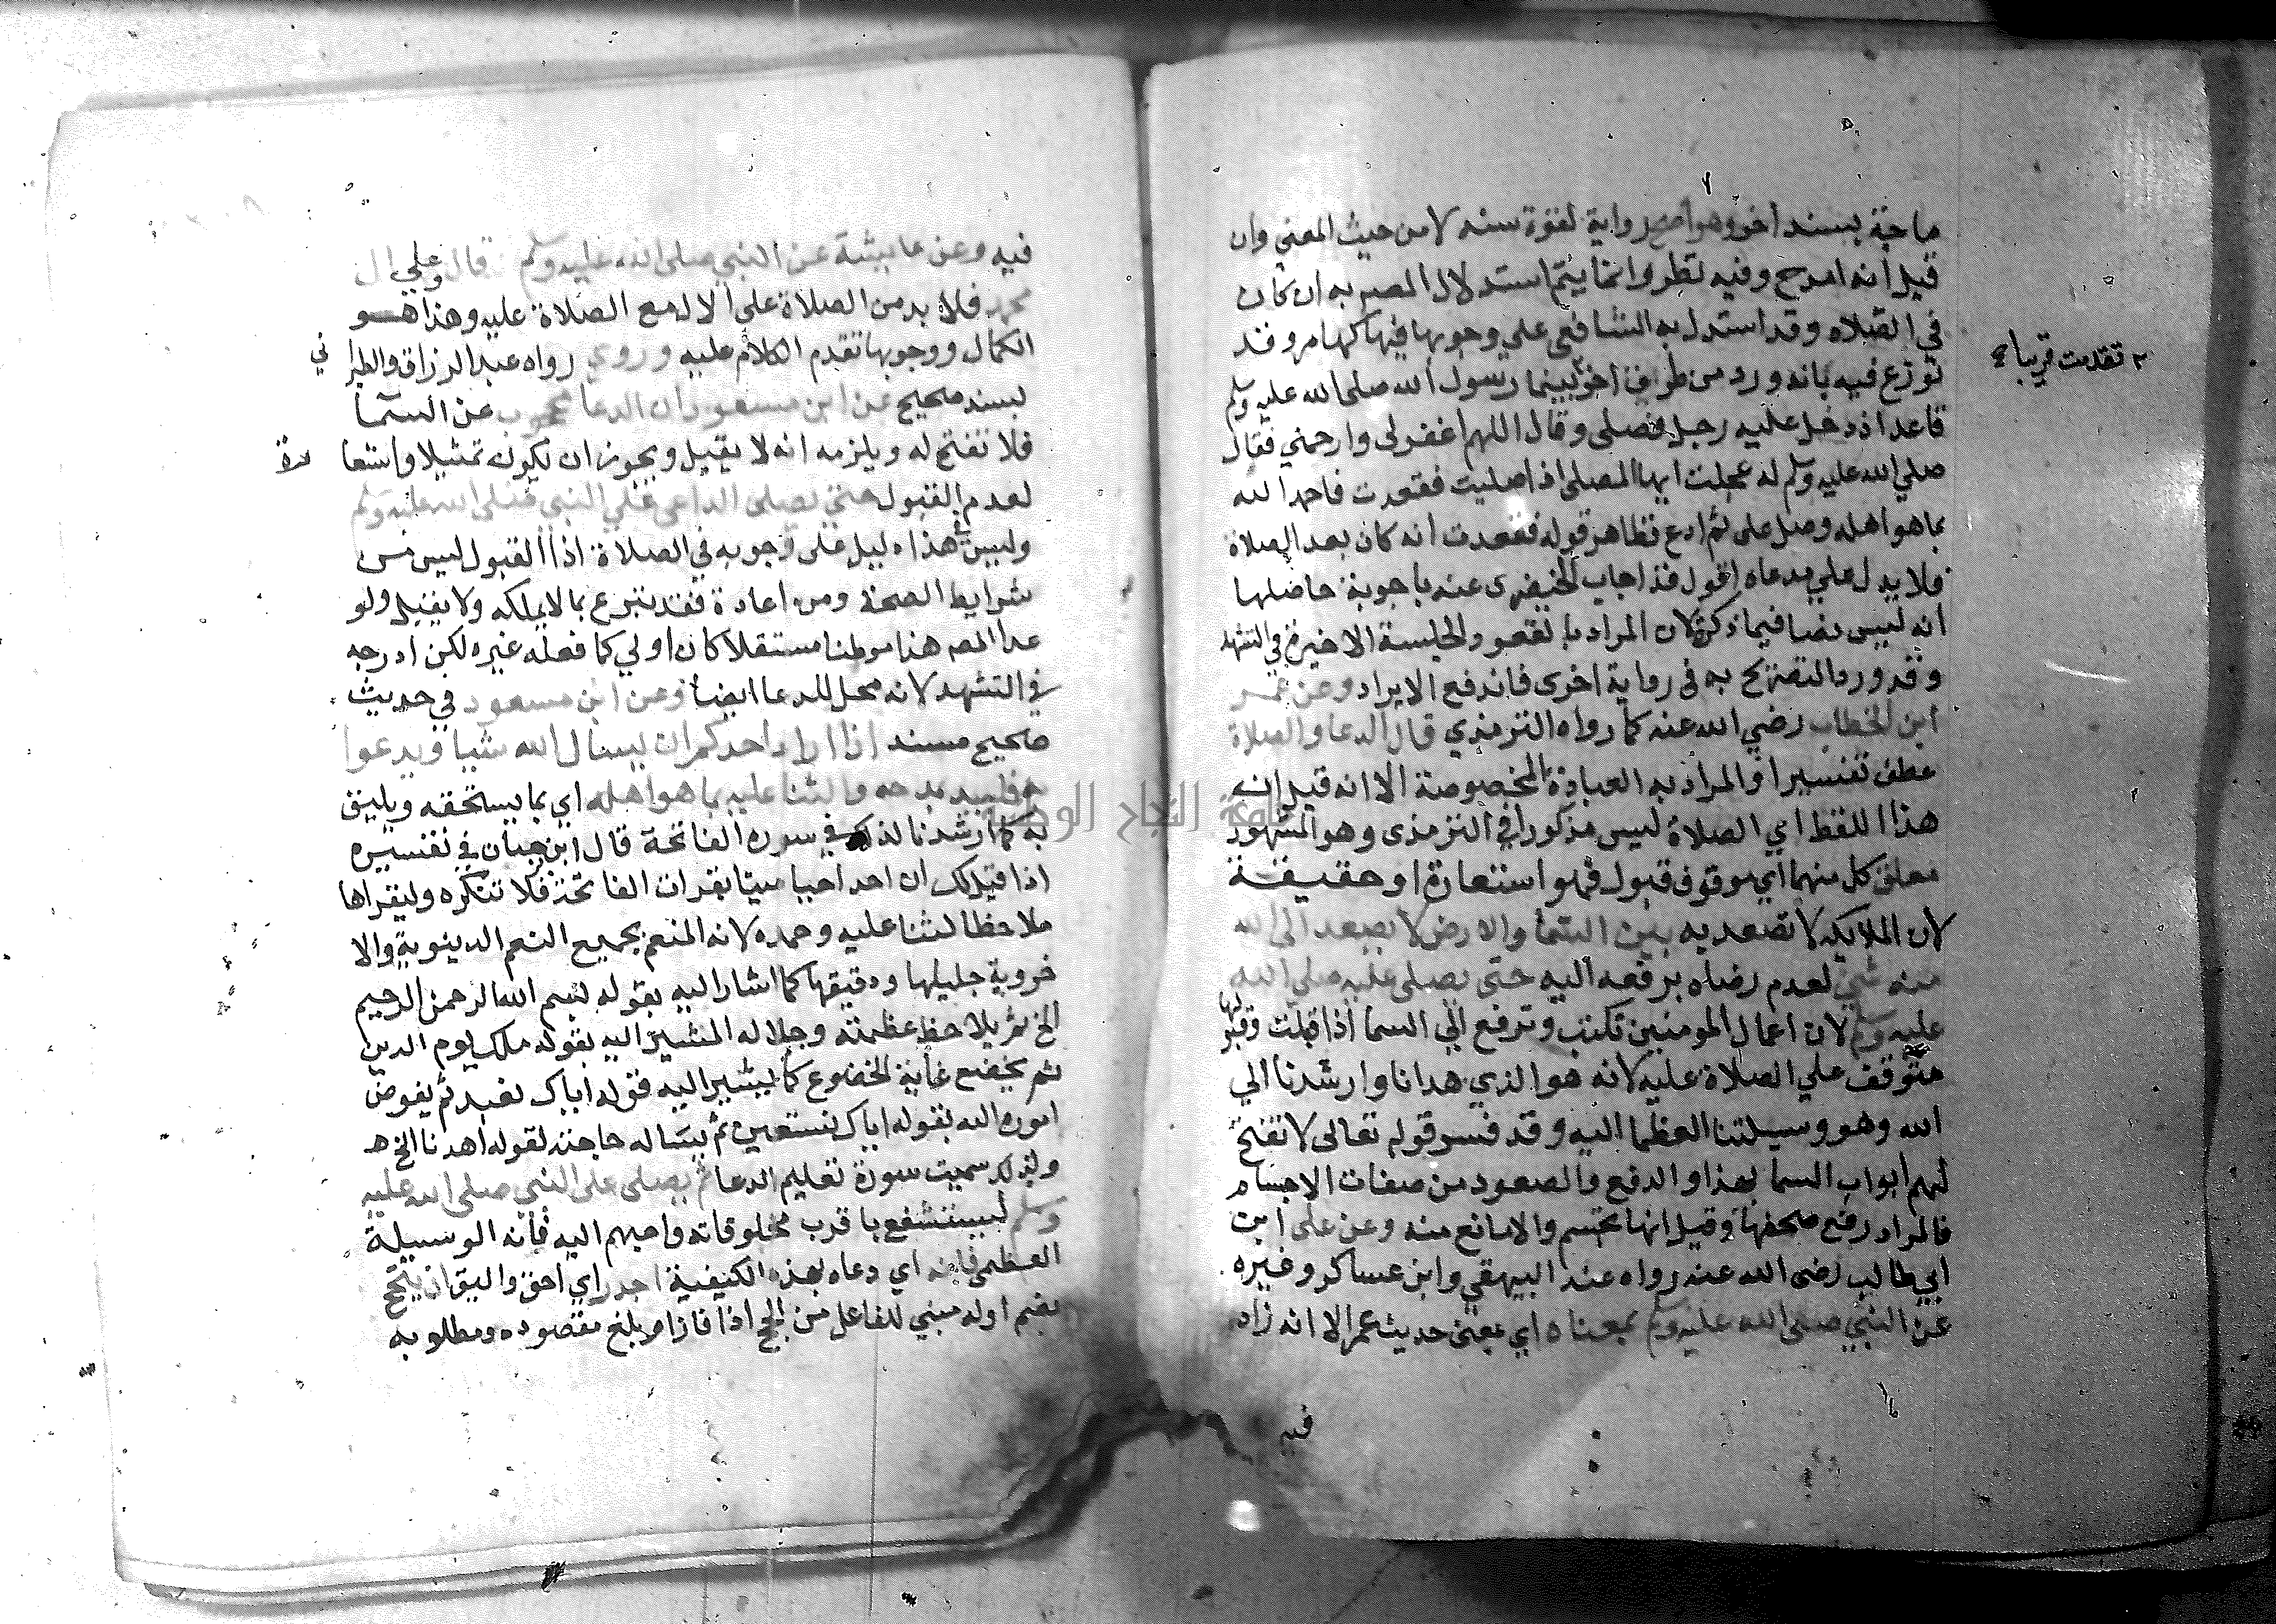 ماجة بسند اخر وهو اصح رواية لقوة سنده لا من حيث المعني وان
قيل انه امدح وفيه نظر وانما يتم استدلال المصر به ان كان
في الصلاه وقد استدل به الشافعي علي وجوبها فيها كما مر وقد
نوزع فيه بانه ورد من طريق اخر بينما رسول الله صلى الله عليه وسلم
٢ تقدمت قريبا ع
قاعد اذ دخل عليه رجل فصلى وقال اللهم اغفر لى وارحمني فقال
صلي الله عليه وسلم له عجلت ايها المصلى اذا صليت فقعدت فاحمد الله
بما هو اهله وصل على ثم ادع فظاهر قوله فقعدت انه كان بعد الصلاة
فلا يدل علي مدعاه اقول قد اجاب الخيضرى عنه باجوبة حاصلها
انه ليس نصا فيما ذكر لان المراد بالقعود الجلسة الاخيرة في التشهد
وقد ورد التصريح به فى رواية اخرى فاندفع الايراد وعن عمر
ابن الخطاب رضي الله عنه كما رواه الترمذي قال الدعا والصلاة
عطف تفسير او المراد به العبادة المخصوصة الا انه قيل ان
هذا اللفظ اي الصلاة ليس مذكورا في الترمذى وهو المشهور
معلق كل منهما اي موقوف قبول فهو استعارة او حقيقة
لان الملايكه لا تصعد به بين السما والارض لا يصعد الى الله
منه شي لعدم رضاه برفعه اليه حتى يصلى عليه صلي الله
عليه وسلم لان اعمال المومنين تكتب وترفع الي السما اذا قبلت وقبولها
متوقف علي الصلاة عليه لانه هو الذي هدانا وارشدنا الي
الله وهو وسيلتنا العظما اليه وقد فسر قوله تعالى لا تفتح
لهم ابواب السما بهذا والدفع والصعود من صفات الاجسام
فالمراد رفع صحفها وقيل انها تجسم والا مانع منه وعن على ابن
ابي طالب رضى الله عنه رواه عند البيهقي وابن عساكر وغيره
عن النبي صلى الله عليه وسلم بمعناه اي بمعنى حديث عمر الا انه زاد
فيه
فيه وعن عايشة عن النبي صلى الله عليه وسلم قال وعلي ال
محمد فلا بد من الصلاة على الال مع الصلاة عليه وهذا هو
الكمال ووجوبها تقدم الكلام عليه وروي رواه عبد الرزاق والطبرا ني
بسند صحيح عن ابن مسعود ان الدعا محجوب عن السما
فلا تفتح له ويلزمه انه لا يقبل ويجوز ان يكون تمثيلا واستعا رة
لعدم القبول حتى يصلى الداعى علي النبي صلى الله عليه وسلم
وليس في هذا دليل على وجوبه في الصلاة اذ القبول ليس من
شرايط الصحة ومن اعادة فقد يتبرع بما لا يملكه ولا يقبل ولو
عدا المصر هذا موطنا مستقلا كان اولي كما فعله غيره لكن ادرجه
في التشهد لانه محل للدعا ايضا وعن ابن مسعود في حديث
صحيح مسند اذا اراد احدكم ان يسال الله شيا ويدعوا
به فليبد بمدحه والثنا عليه بما هو اهله اي بما يستحقه ويليق
به كما ارشدنا لذلك في سوره الفاتحة قال ابن حبان في تفسيره
اذا قيل لك ان احدا احيا ميتا بقرات الفاتحة فلا تنكره وليقراها
ملاحظا لثنا عليه وحمده لانه المنعم بجميع النعم الدينوية والا
خروية جليلها ودقيقها كما اشار اليه بقوله بسم الله الرحمن الرحيم
الخ ثم يلاحظ عظمته وجلاله المشير اليه بقوله ملك يوم الدين
ثم يخضع غاية الخضوع كما يشير اليه قوله اياك نعبد ثم يفوض
اموره اليه بقوله اياك نستعين ثم يساله حاجته لقوله اهدنا الخ
ولذلك سميت سورة تعليم الدعا ثم يصلى على النبي صلى الله عليه
وسلم ليستشفع باقرب مخلوقاته واحبهم اليه فانه الوسيلة
العظمى فانه اي دعاه بهذه الكيفية اجدر اي احق واليق ان ينجح
بضم اوله مبني للفاعل من انجح اذا فاز او بلغ مقصوده ومطلوبه
جامعة النجاح الوطنية